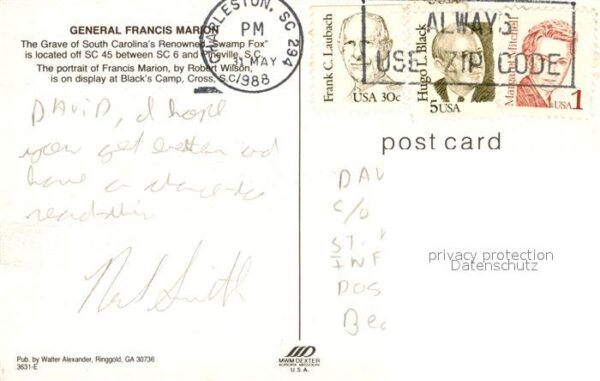 GENERAL FRANCIS MARION
The Grave of South Carolina's Renowned "Swamp Fox"
is located off SC 45 between SC 6 and Pineville, S.C.
The portrait of Francis Marion, by Robert Wilson,
is on display at Black's Camp, Cross, S.C.
CHARLESTON, SC 294
PM
MAY
1988
ALWAYS
USE ZIP CODE
Frank C. Laubach
USA 30c
Hugo L. Black
5USA
Margaret Mitchell
USA 1
post card
DAVID, I hope
you get better and
have a
Smith
DAV
C/O
ST.
INF
POS
Bea
privacy protection
Datenschutz
Pub. by Walter Alexander, Ringgold, GA 30736
3631-E
MWM DEXTER
AURORA, MISSOURI
U.S.A.